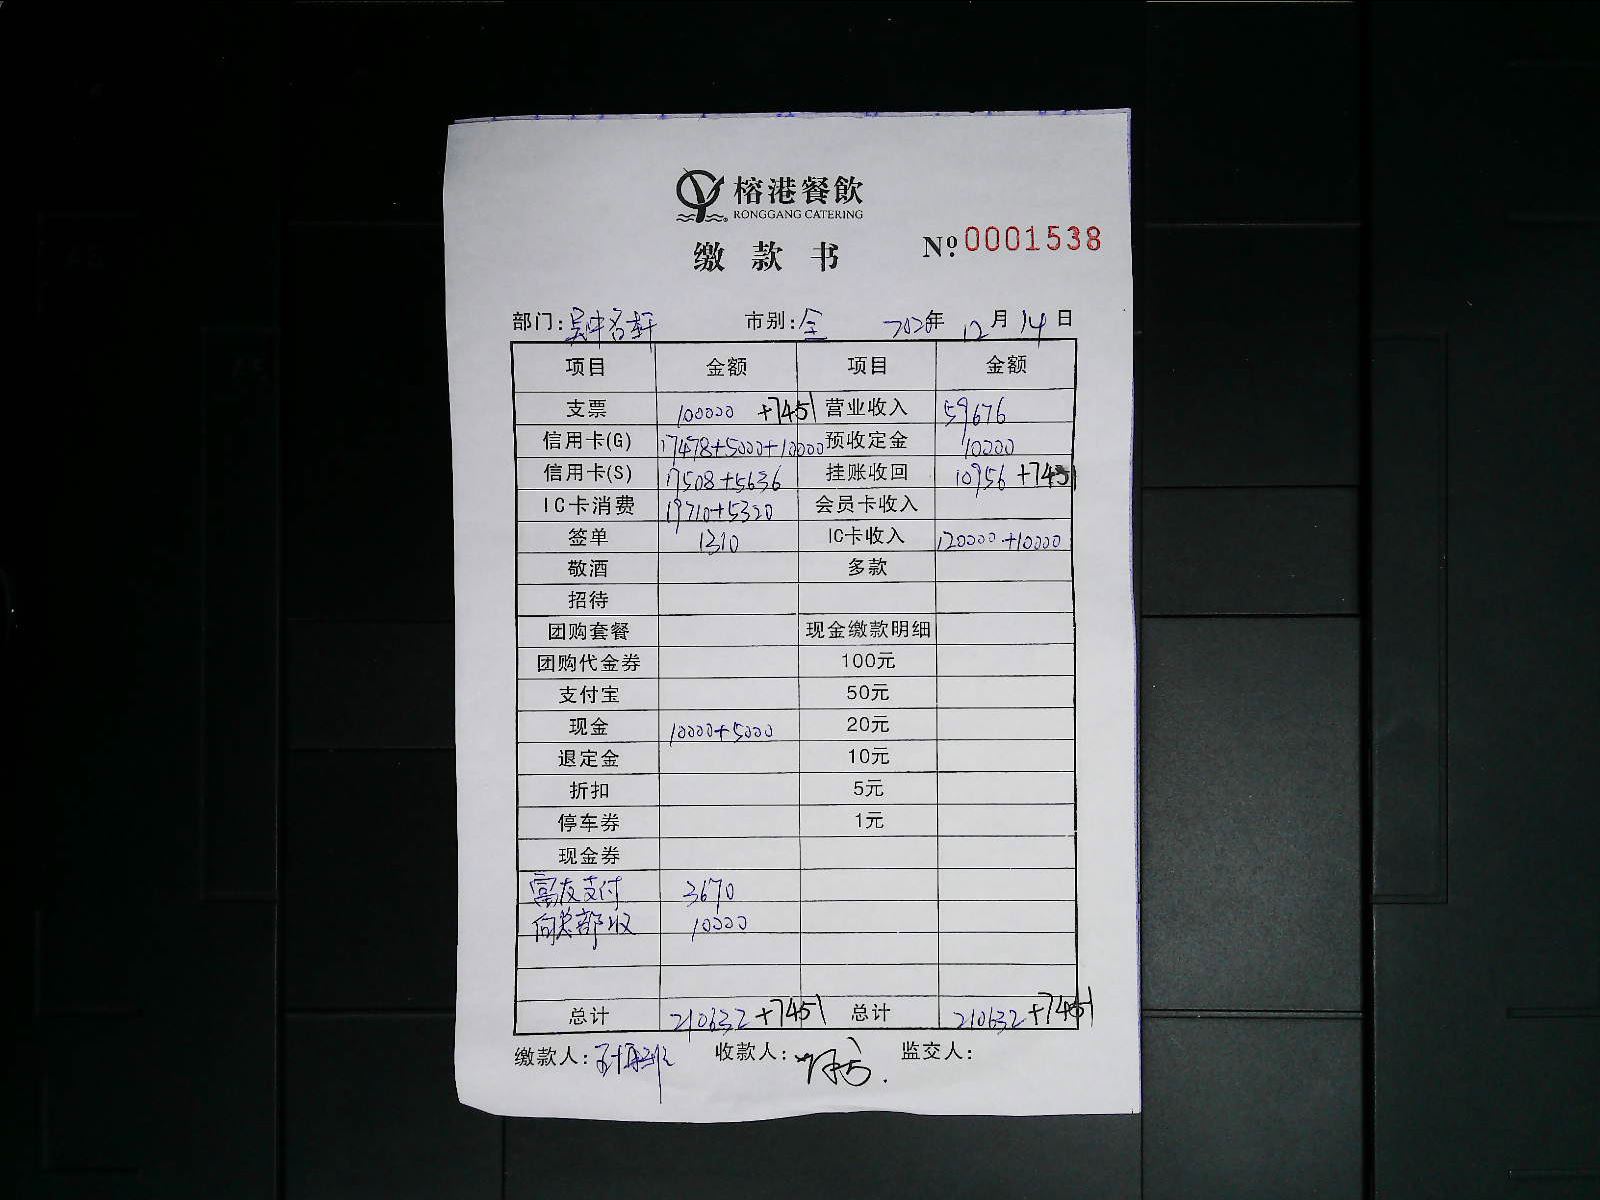 榕港餐飲
RONGGANG CATERING
缴款书 № 0001538
部门: 吴中名轩 市别: 全 2020年 12月 14日
项目 金额 项目 金额
支票 100000 +7451 营业收入 59676
信用卡(G) 17478+5000+10000 预收定金 10000
信用卡(S) 17508+5636 挂账收回 10956 +7451
IC卡消费 19710+5320 会员卡收入
签单 1310 IC卡收入 120000+10000
敬酒 多款
招待
团购套餐 现金缴款明细
团购代金券 100元
支付宝 50元
现金 10000+5000 20元
退定金 10元
折扣 5元
停车券 1元
现金券
富友支付 3670
向总部收 10000
总计 210632 +7451 总计 210632 +7451
缴款人: 收款人: 监交人: